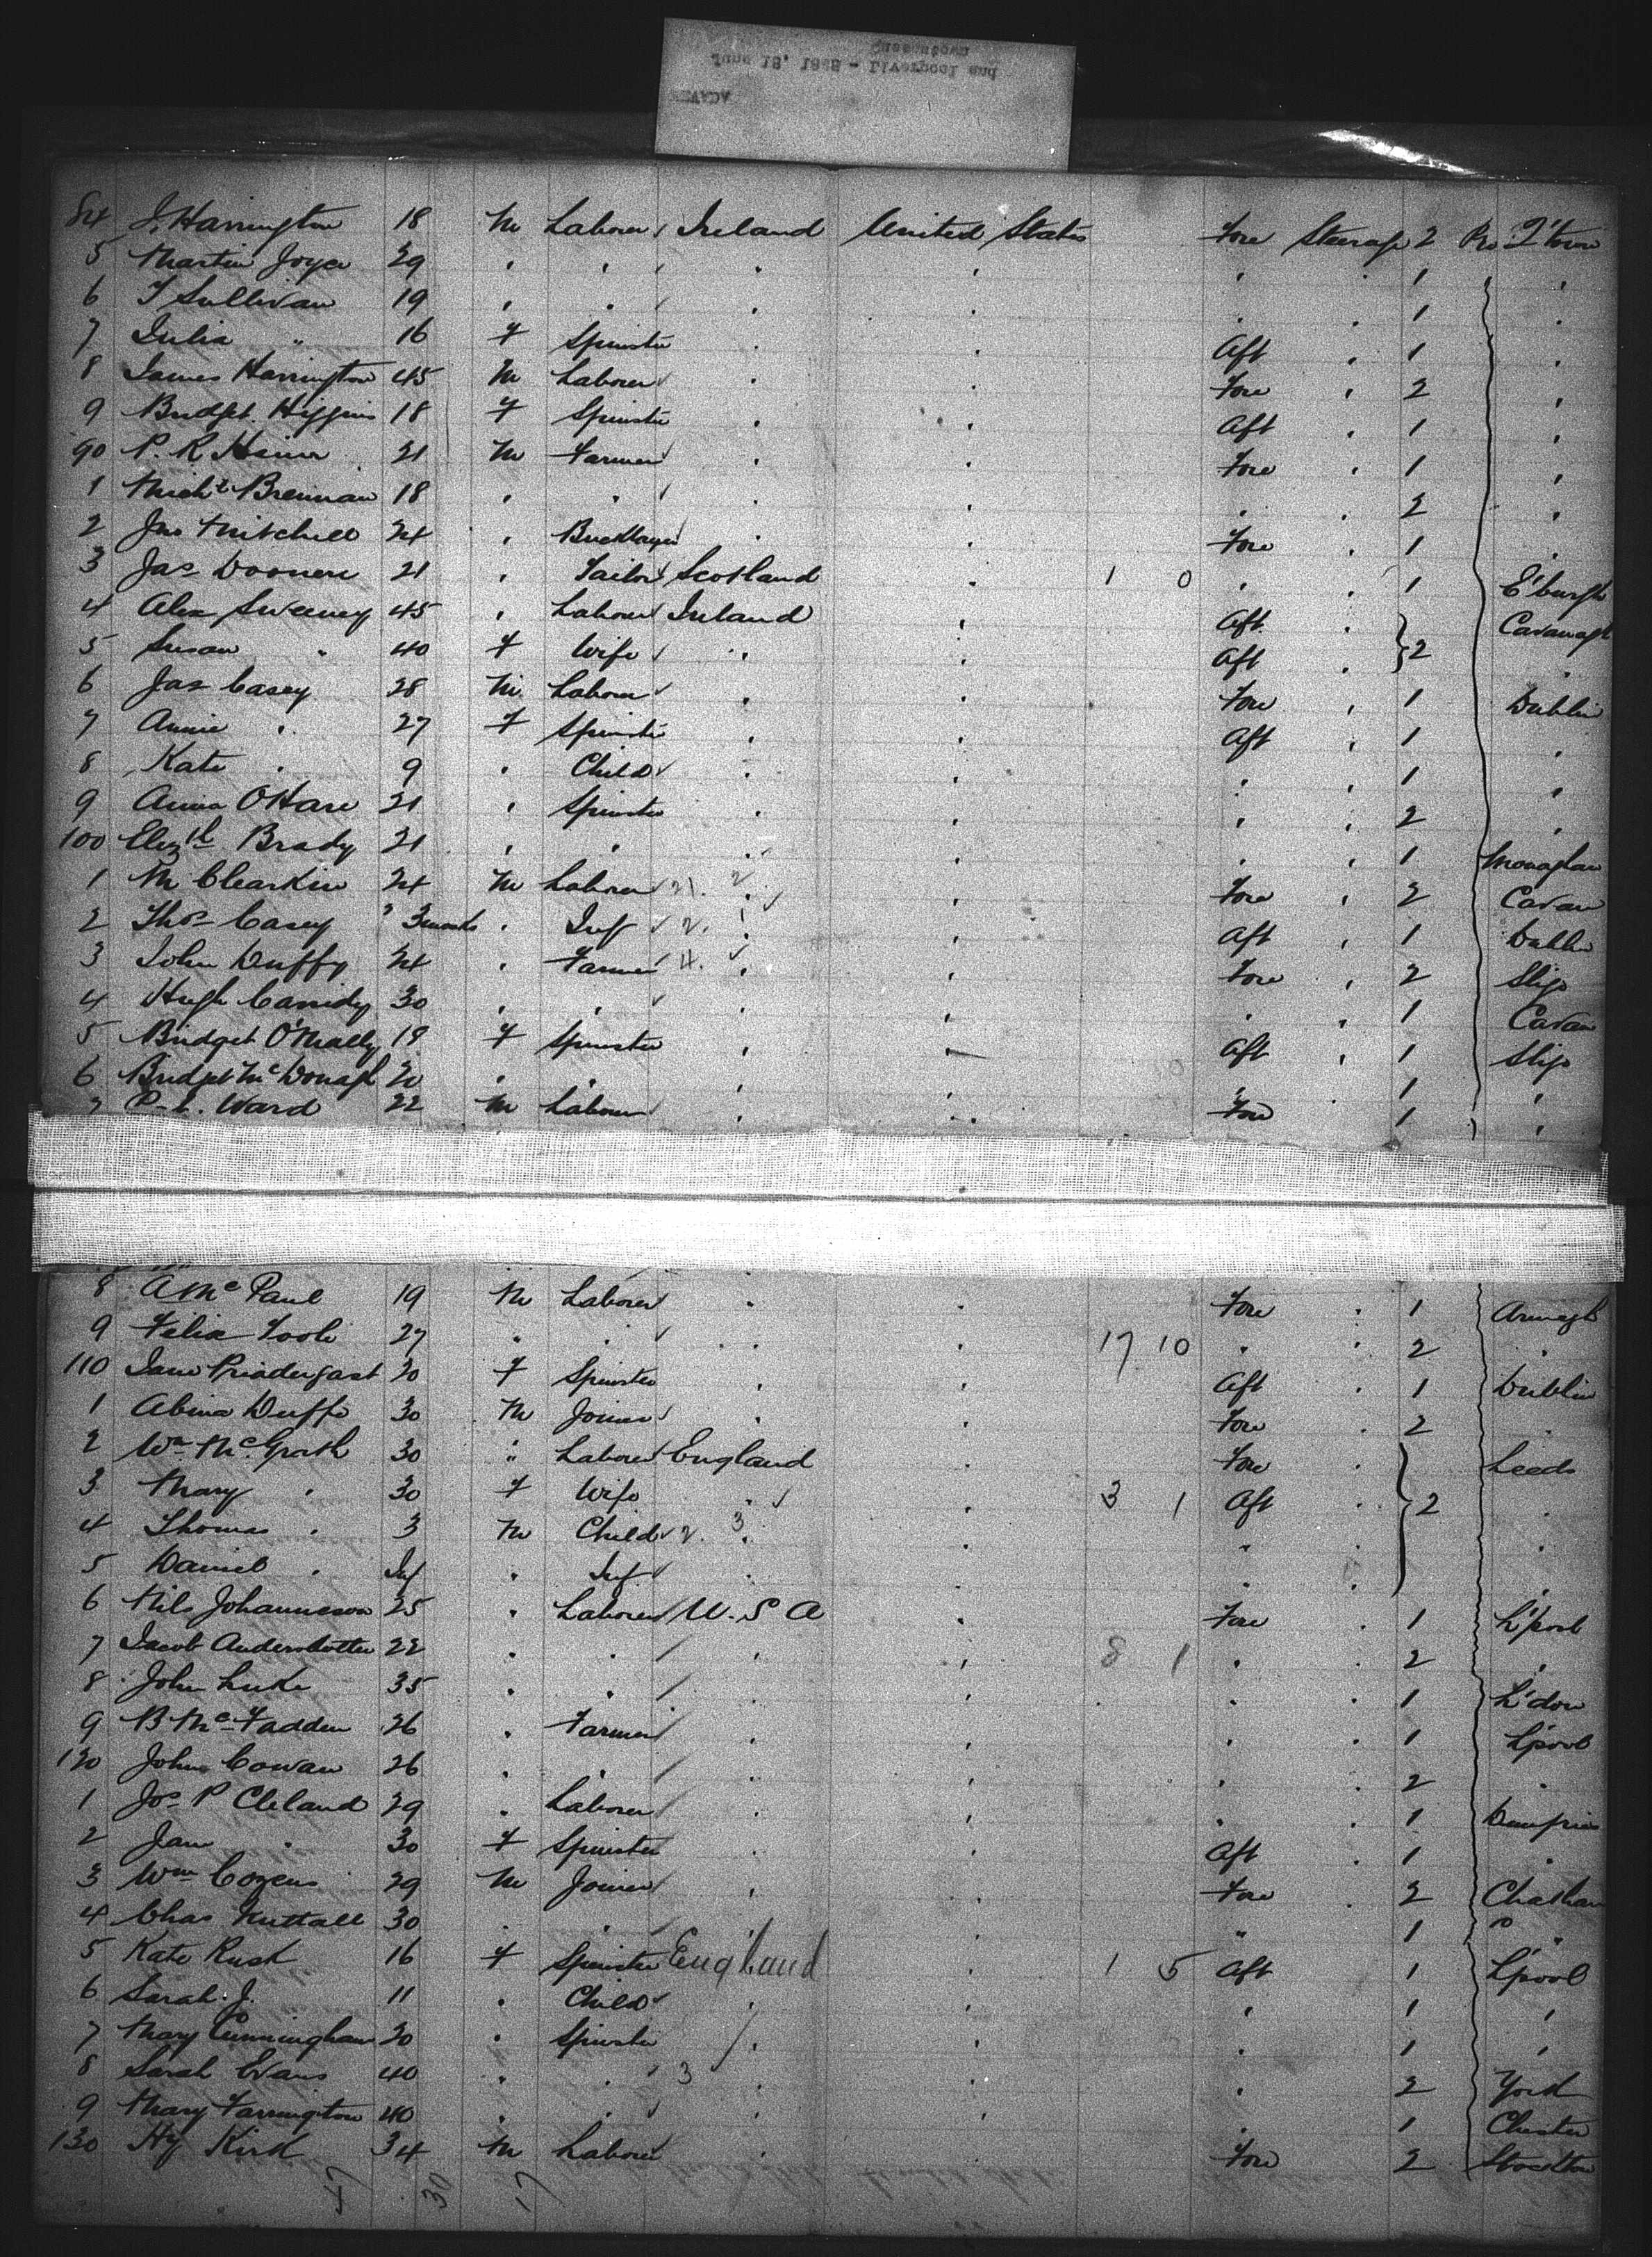 June 18, 1888 - Liverpool and
84 J. Harrington 18 M Laborer Ireland United States Fore Steerage 2 Q'town
5 Martin Joyce 29 " " " " " " 1 "
6 T Sullivan 19 " " " " " " 1 "
7 Julia " 16 F Spinster " " Aft " 1 "
8 James Harrington 45 M Laborer " " Fore " 2 "
9 Bridget Higgins 18 F Spinster " " Aft " 1 "
90 P. R 21 M Farmer " " Fore " 1 "
1 Michl Brennan 18 " " " " " " 2 "
2 Jno Mitchell 24 " Bricklayer " " Fore " 1 "
3 Jas 21 " Tailor Scotland " 1 0 " " 1 E'burgh
4 Alex Sweeney 45 " Laborer Ireland " Aft " Cavanagh
5 Susan " 40 F Wife " " Aft " 2 "
6 Jas Casey 28 M Laborer " " Fore " 1 Dublin
7 Annie " 27 F Spinster " " Aft " 1 "
8 Kate " 9 " Child " " " " 1 "
9 Annie O'Hare 21 " Spinster " " " " 2 "
100 Elizth Brady 21 " " " " " " 1 Monaghan
1 M Clearkin 24 M Laborer " " Fore " 2 Cavan
2 Thos Casey 3 months " Inf " " Aft " 1 Dublin
3 John Duffy 24 " Farmer " " Fore " 2 Sligo
4 Hugh Cassidy 30 " " " " " " 1 Cavan
5 Bridget O'Mally 19 F Spinster " " Aft " 1 Sligo
6 Bridget McDonagh 20 " " " " " " 1 "
7 Ward 22 M Laborer " " Fore 1 "
8 A McPaul 19 M Laborer " " Fore " 1 Armagh
9 Felix Toole 27 " " " " 17 10 " " 2 "
110 Jane Pridergast 20 F Spinster " " Aft " 1 Dublin
1 Duffe 30 M Joiner " " Fore " 2 "
2 Wm McGrath 30 " Laborer England " Fore " Leeds
3 Mary " 30 F Wife " " 3 1 Aft " 2 "
4 Thomas " 3 M Child " " " "
5 Daniel " Inf " Inf " " " "
6 Nils Johanneson 25 " Laborer U. S A " Fore " 1 L'pool
7 Jacob 22 " " " " 8 1 " 2 "
8 John Luke 35 " " " " " " 1 L'don
9 B McFadden 26 " Farmer " " " " 1 L'pool
120 John Cowan 26 " " " " " " 2 "
1 Jos P Cleland 29 " Laborer " " " " 1 Dumfries
2 Jane " 30 F Spinster " " Aft " 1 "
3 Wm Cozens 29 M Joiner " " Fore " 2 Chatham
4 Chas Nuttall 30 " " " " " 1 "
5 Kate Rush 16 F Spinster England " 1 5 Aft 1 L'pool
6 Sarah J. 11 " Child " " " 1 "
7 Mary Cunningham 20 " Spinster " " " 1 "
8 Sarah Evans 40 " " 3 " " " 2 York
9 Mary Farrington 40 " " " " " 1 Chester
130 Hy Kirk 34 M Laborer " " Fore 2 Stockton
30 17